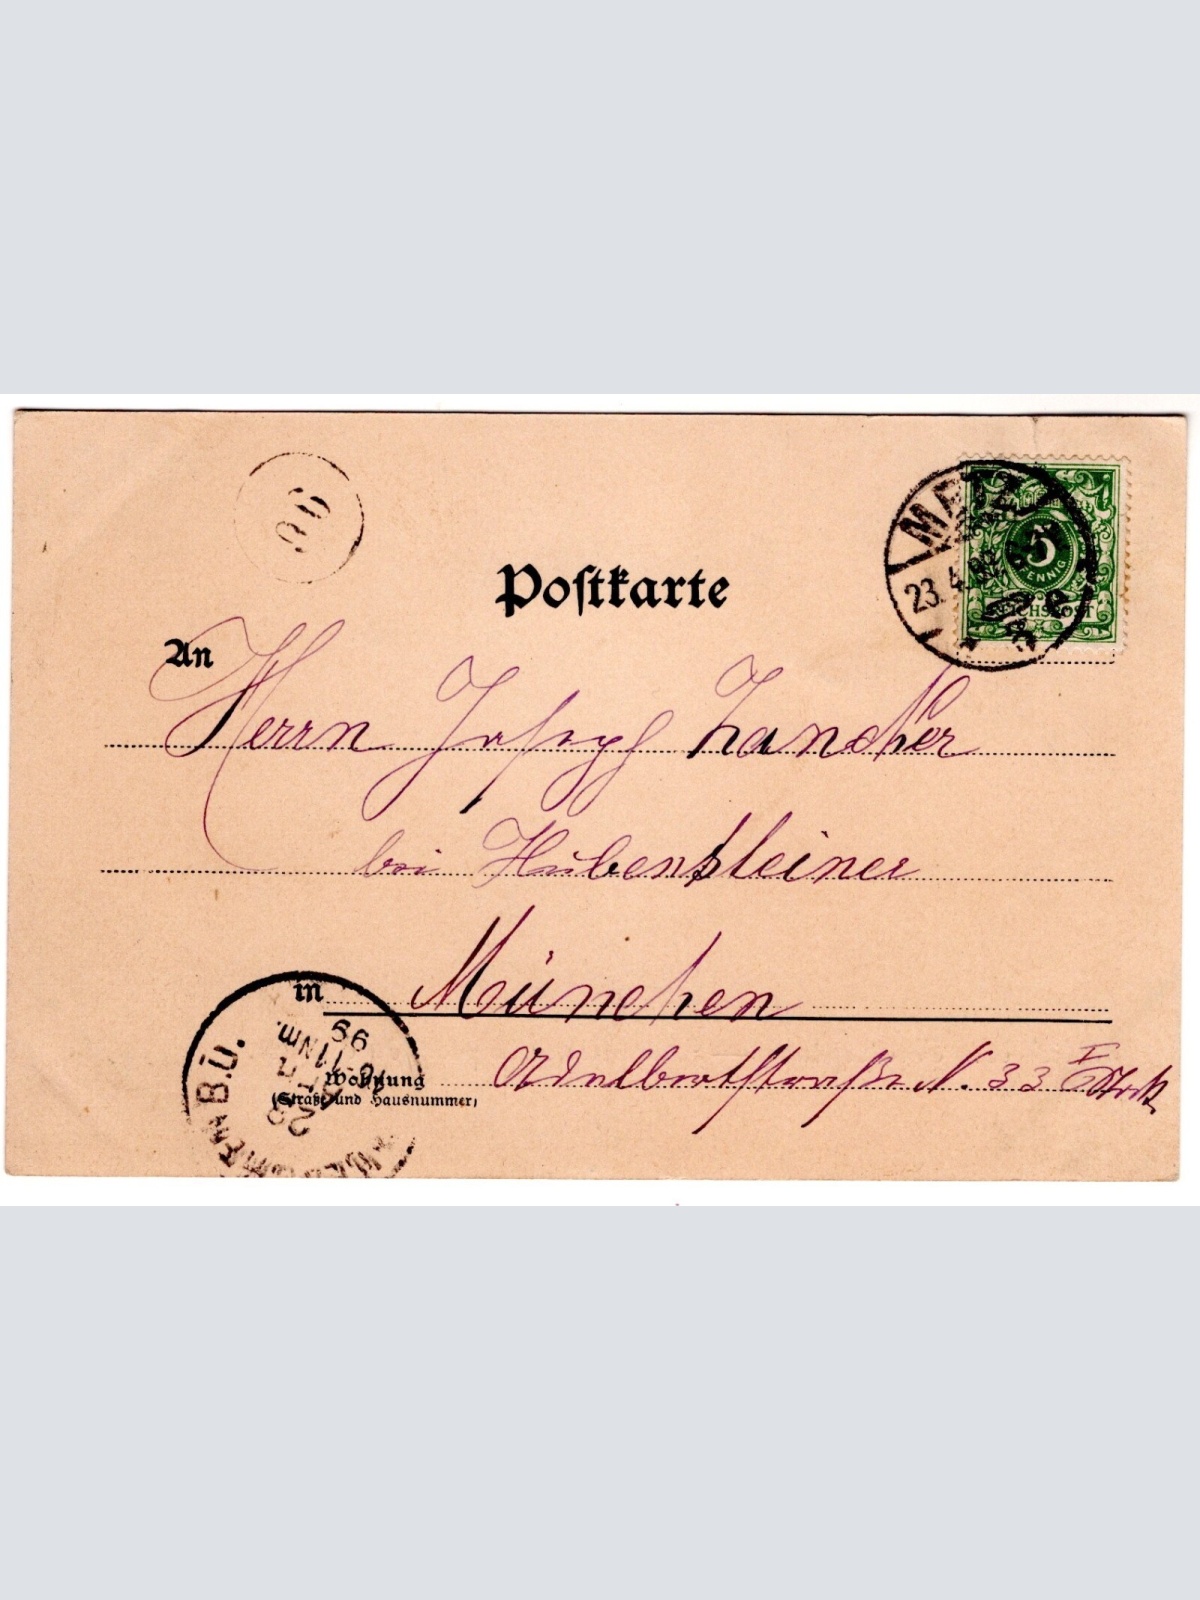 98
Postkarte
METZ
23.4.99
5
PFENNIG
REICHSPOST
An
Herrn Joseph Zancher
bei Hubensteiner
in München
Wohnung
(Straße und Hausnummer)
Adelbertstraße N. 33 I Stock
B.Ü.
11 Nm.
99